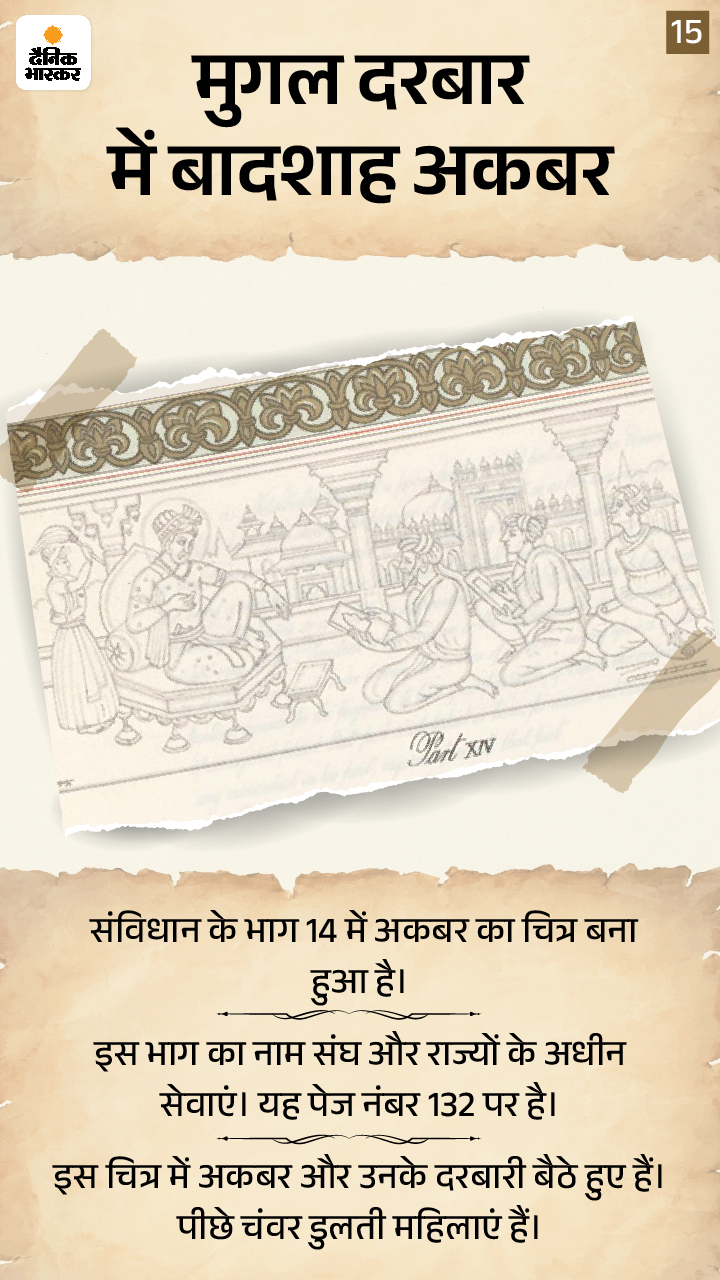 दैनिक
भास्कर
15
मुगल दरबार
में बादशाह अकबर
Part XIV
संविधान के भाग 14 में अकबर का चित्र बना
हुआ है।
इस भाग का नाम संघ और राज्यों के अधीन
सेवाएं। यह पेज नंबर 132 पर है।
इस चित्र में अकबर और उनके दरबारी बैठे हुए हैं।
पीछे चंवर डुलती महिलाएं हैं।